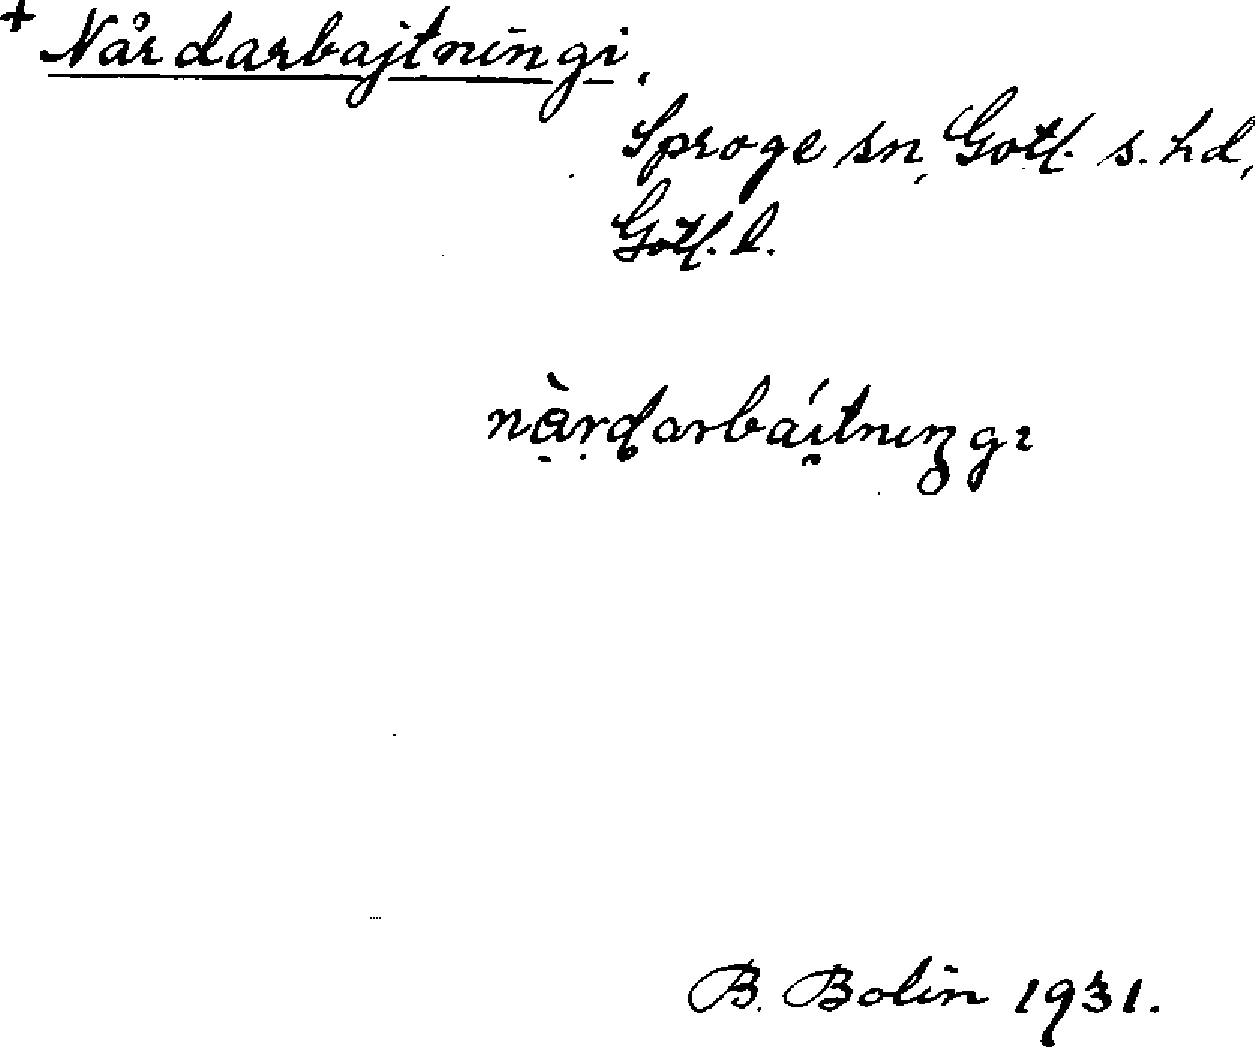 + Nårdarbajtningi.
Sproge sn, Gotl. s. hd,
Gotl. l.
nàrdarbáitningı
B. Bolin 1931.